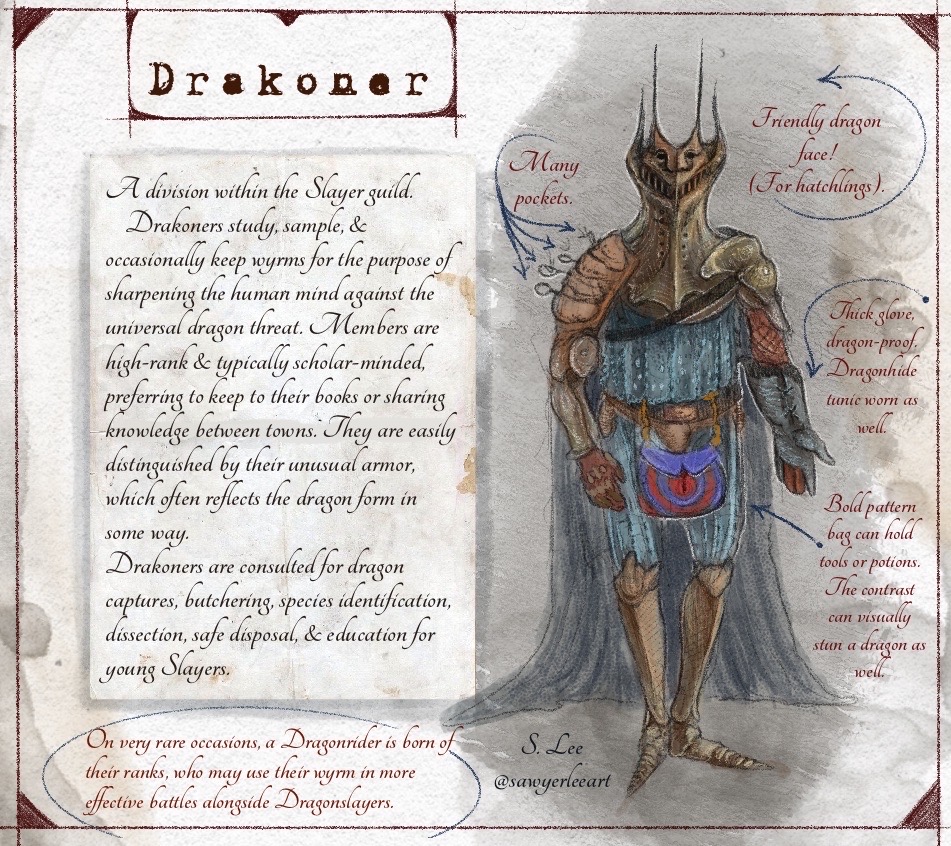 Drakoner
A division within the Slayer guild.
Drakoners study, sample, &
occasionally keep wyrms for the purpose of
sharpening the human mind against the
universal dragon threat. Members are
high-rank & typically scholar-minded,
preferring to keep to their books or sharing
knowledge between towns. They are easily
distinguished by their unusual armor,
which often reflects the dragon form in
some way.
Drakoners are consulted for dragon
captures, butchering, species identification,
dissection, safe disposal, & education for
young Slayers.
On very rare occasions, a Dragonrider is born of
their ranks, who may use their wyrm in more
effective battles alongside Dragonslayers.
Many
pockets.
Friendly dragon
face!
(For hatchlings).
Thick glove,
dragon-proof.
Dragonhide
tunic worn as
well.
Bold pattern
bag can hold
tools or potions.
The contrast
can visually
stun a dragon as
well.
S. Lee
@sawyerleeart